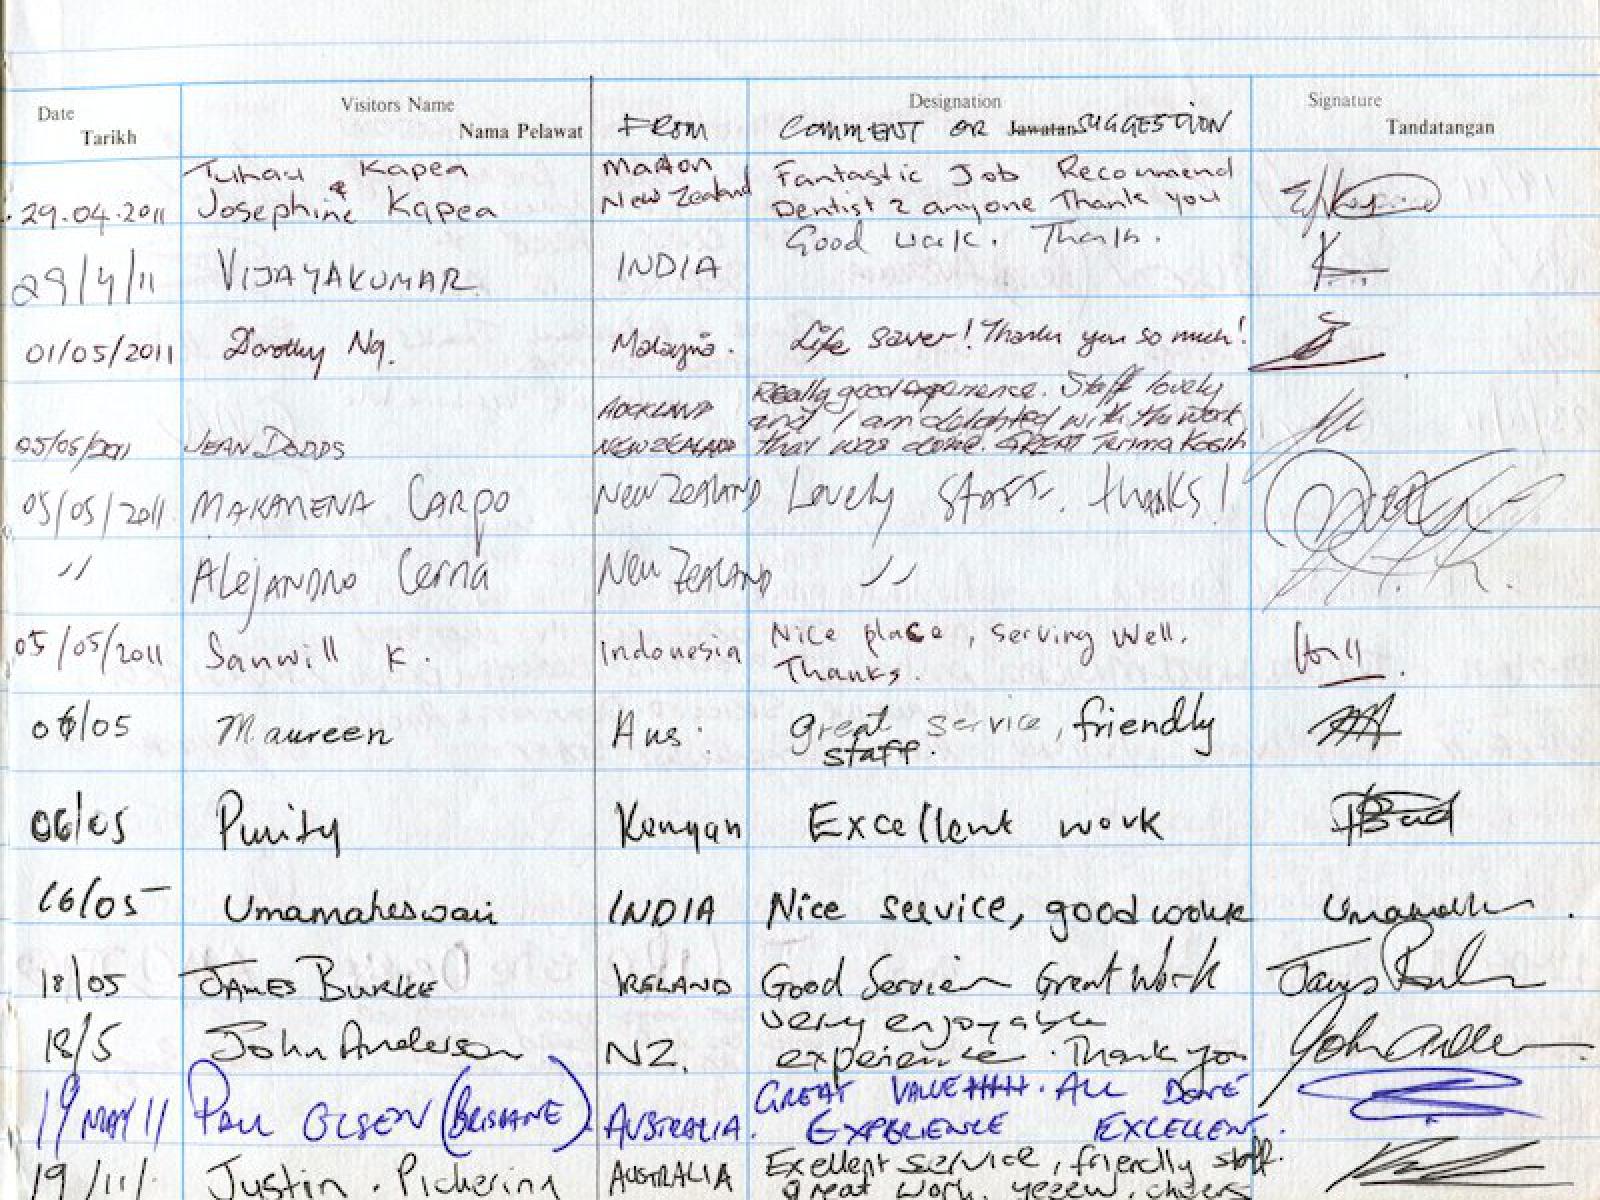 Date Visitors Name Designation Signature
Tarikh Nama Pelawat FROM COMMENT OR Jawatan SUGGESTION Tandatangan
Tuhau Kapea Marton Fantastic Job Recommend
29.04.2011 & Josephine Kapea New Zealand Dentist 2 anyone Thank you
Good work. Thanks.
29/4/11 VIJAYAKUMAR INDIA
01/05/2011 Dorothy Ng. Malaysia. Life saver! Thank you so much!
Really good experience. Staff lovely
AUCKLAND and I am delighted with the work
05/05/2011 JEAN DODDS NEW ZEALAND that was done. GREAT Terima Kasih
05/05/2011 MAKAMENA CARPO NEW ZEALAND Lovely staff, thanks!
〃 Alejandro Cerna New ZEALAND 〃
05/05/2011 Sanwill K. Indonesia Nice place, serving well.
Thanks.
06/05 Maureen Aus. great service, friendly
staff.
06/05 Purity Kenyan Excellent work
06/05 Umamaheswari INDIA Nice service, good worke
18/05 JAMES BURKE IRELAND Good Service Great Work James Burke
very enjoyable
18/5 John Anderson NZ. experience. Thank you John Anderson
GREAT VALUE. ALL DONE
19 MAY 11 PAUL OLSEN (BRISBANE) AUSTRALIA. EXPERIENCE EXCELLENT.
Exellent service, friendly staff.
19/11/. Justin. Pickering AUSTRALIA great work. yeeew. cheers